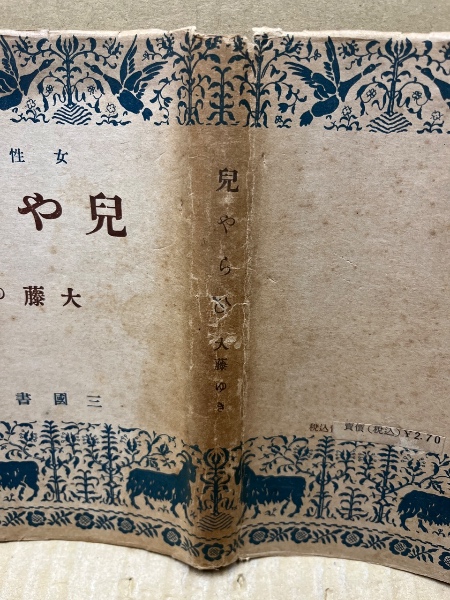 性女
や兒
藤大
書國三
兒やらひ
大藤ゆき
税込1 賣價(税込)¥2.70